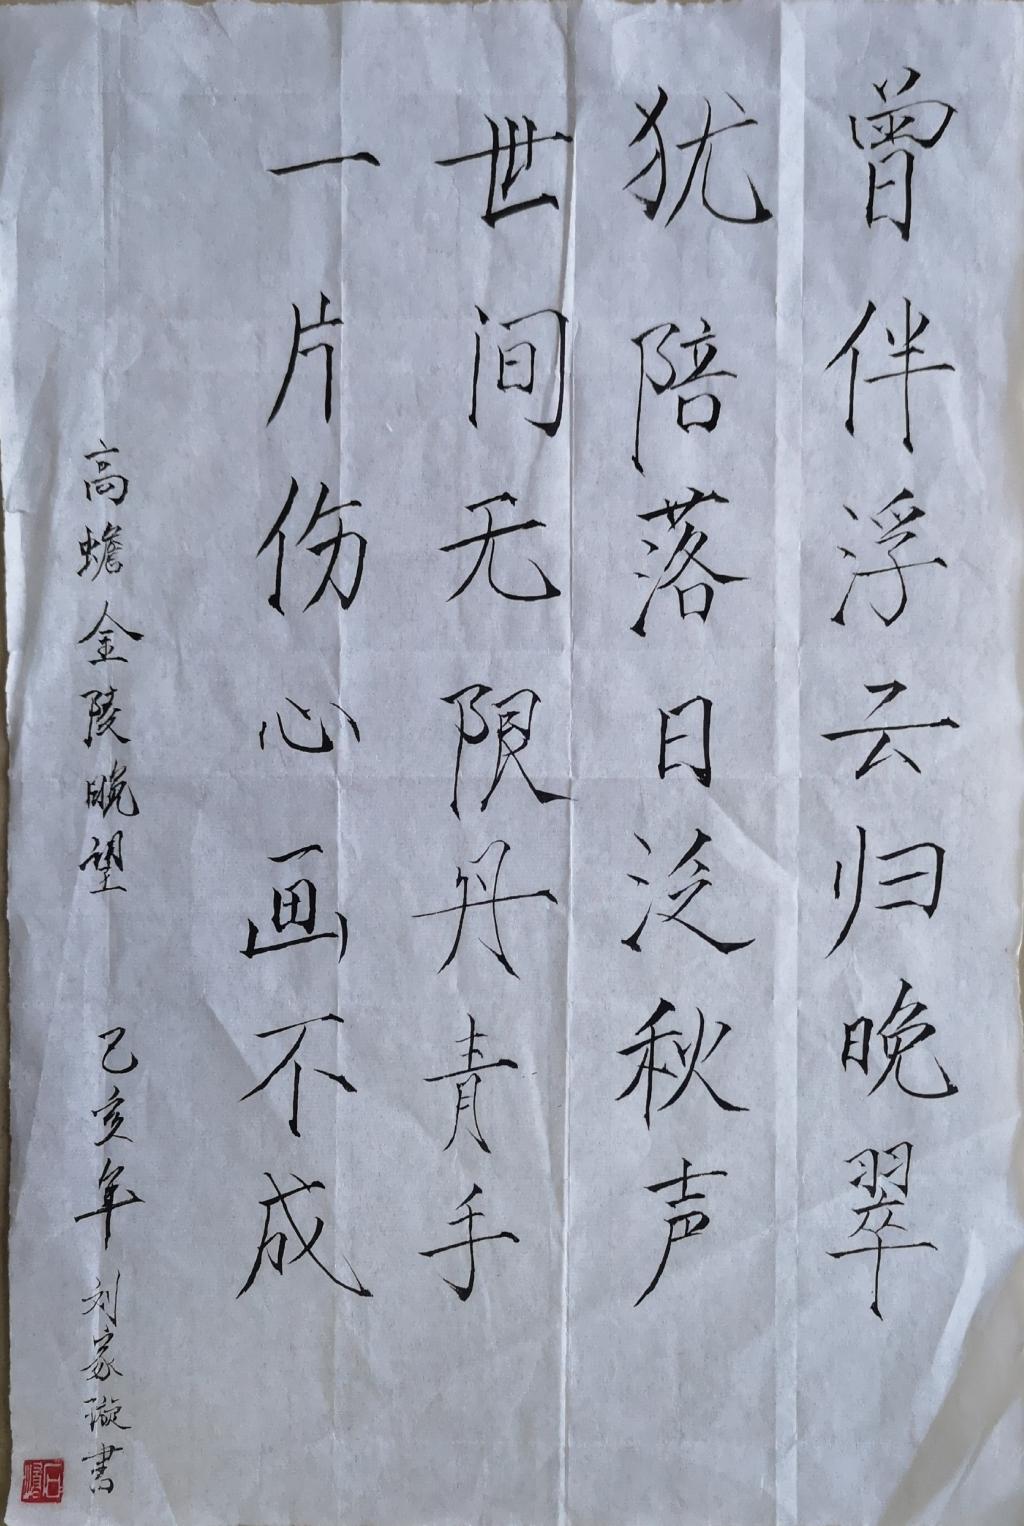 曾伴浮云归晚翠
犹陪落日泛秋声
世间无限丹青手
一片伤心画不成
高蟾金陵晚望 己亥年 刘家璇书